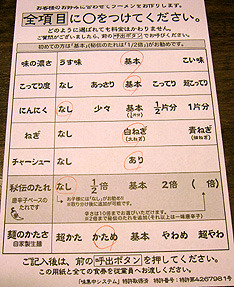 お客様のお好みに合わせてラーメンをお作りします。
全項目に○をつけてください。
どのように選ばれても料金はかわりません。
ご質問がございましたら、前の呼出ボタンでお呼びください。
初めての方は「基本」(秘伝のたれは「1/2倍」)がお勧めです。
味の濃さ うす味 基本 こい味
こってり度 なし あっさり 基本 こってり 超こってり
にんにく なし 少々 基本 1/2片分 1片分
ねぎ なし 白ねぎ 青ねぎ
チャーシュー なし あり
秘伝のたれ なし 1/2倍 基本 2倍 ( 倍)
唐辛子ベースのたれです
麺のかたさ 超かた かため 基本 やわめ 超やわ
自家製生麺
ご記入後は、前の呼出ボタンを押してください。
この用紙と全ての食券を従業員へお渡しください。
「味集中システム」特許取得済 特許番号:特許第4267981号